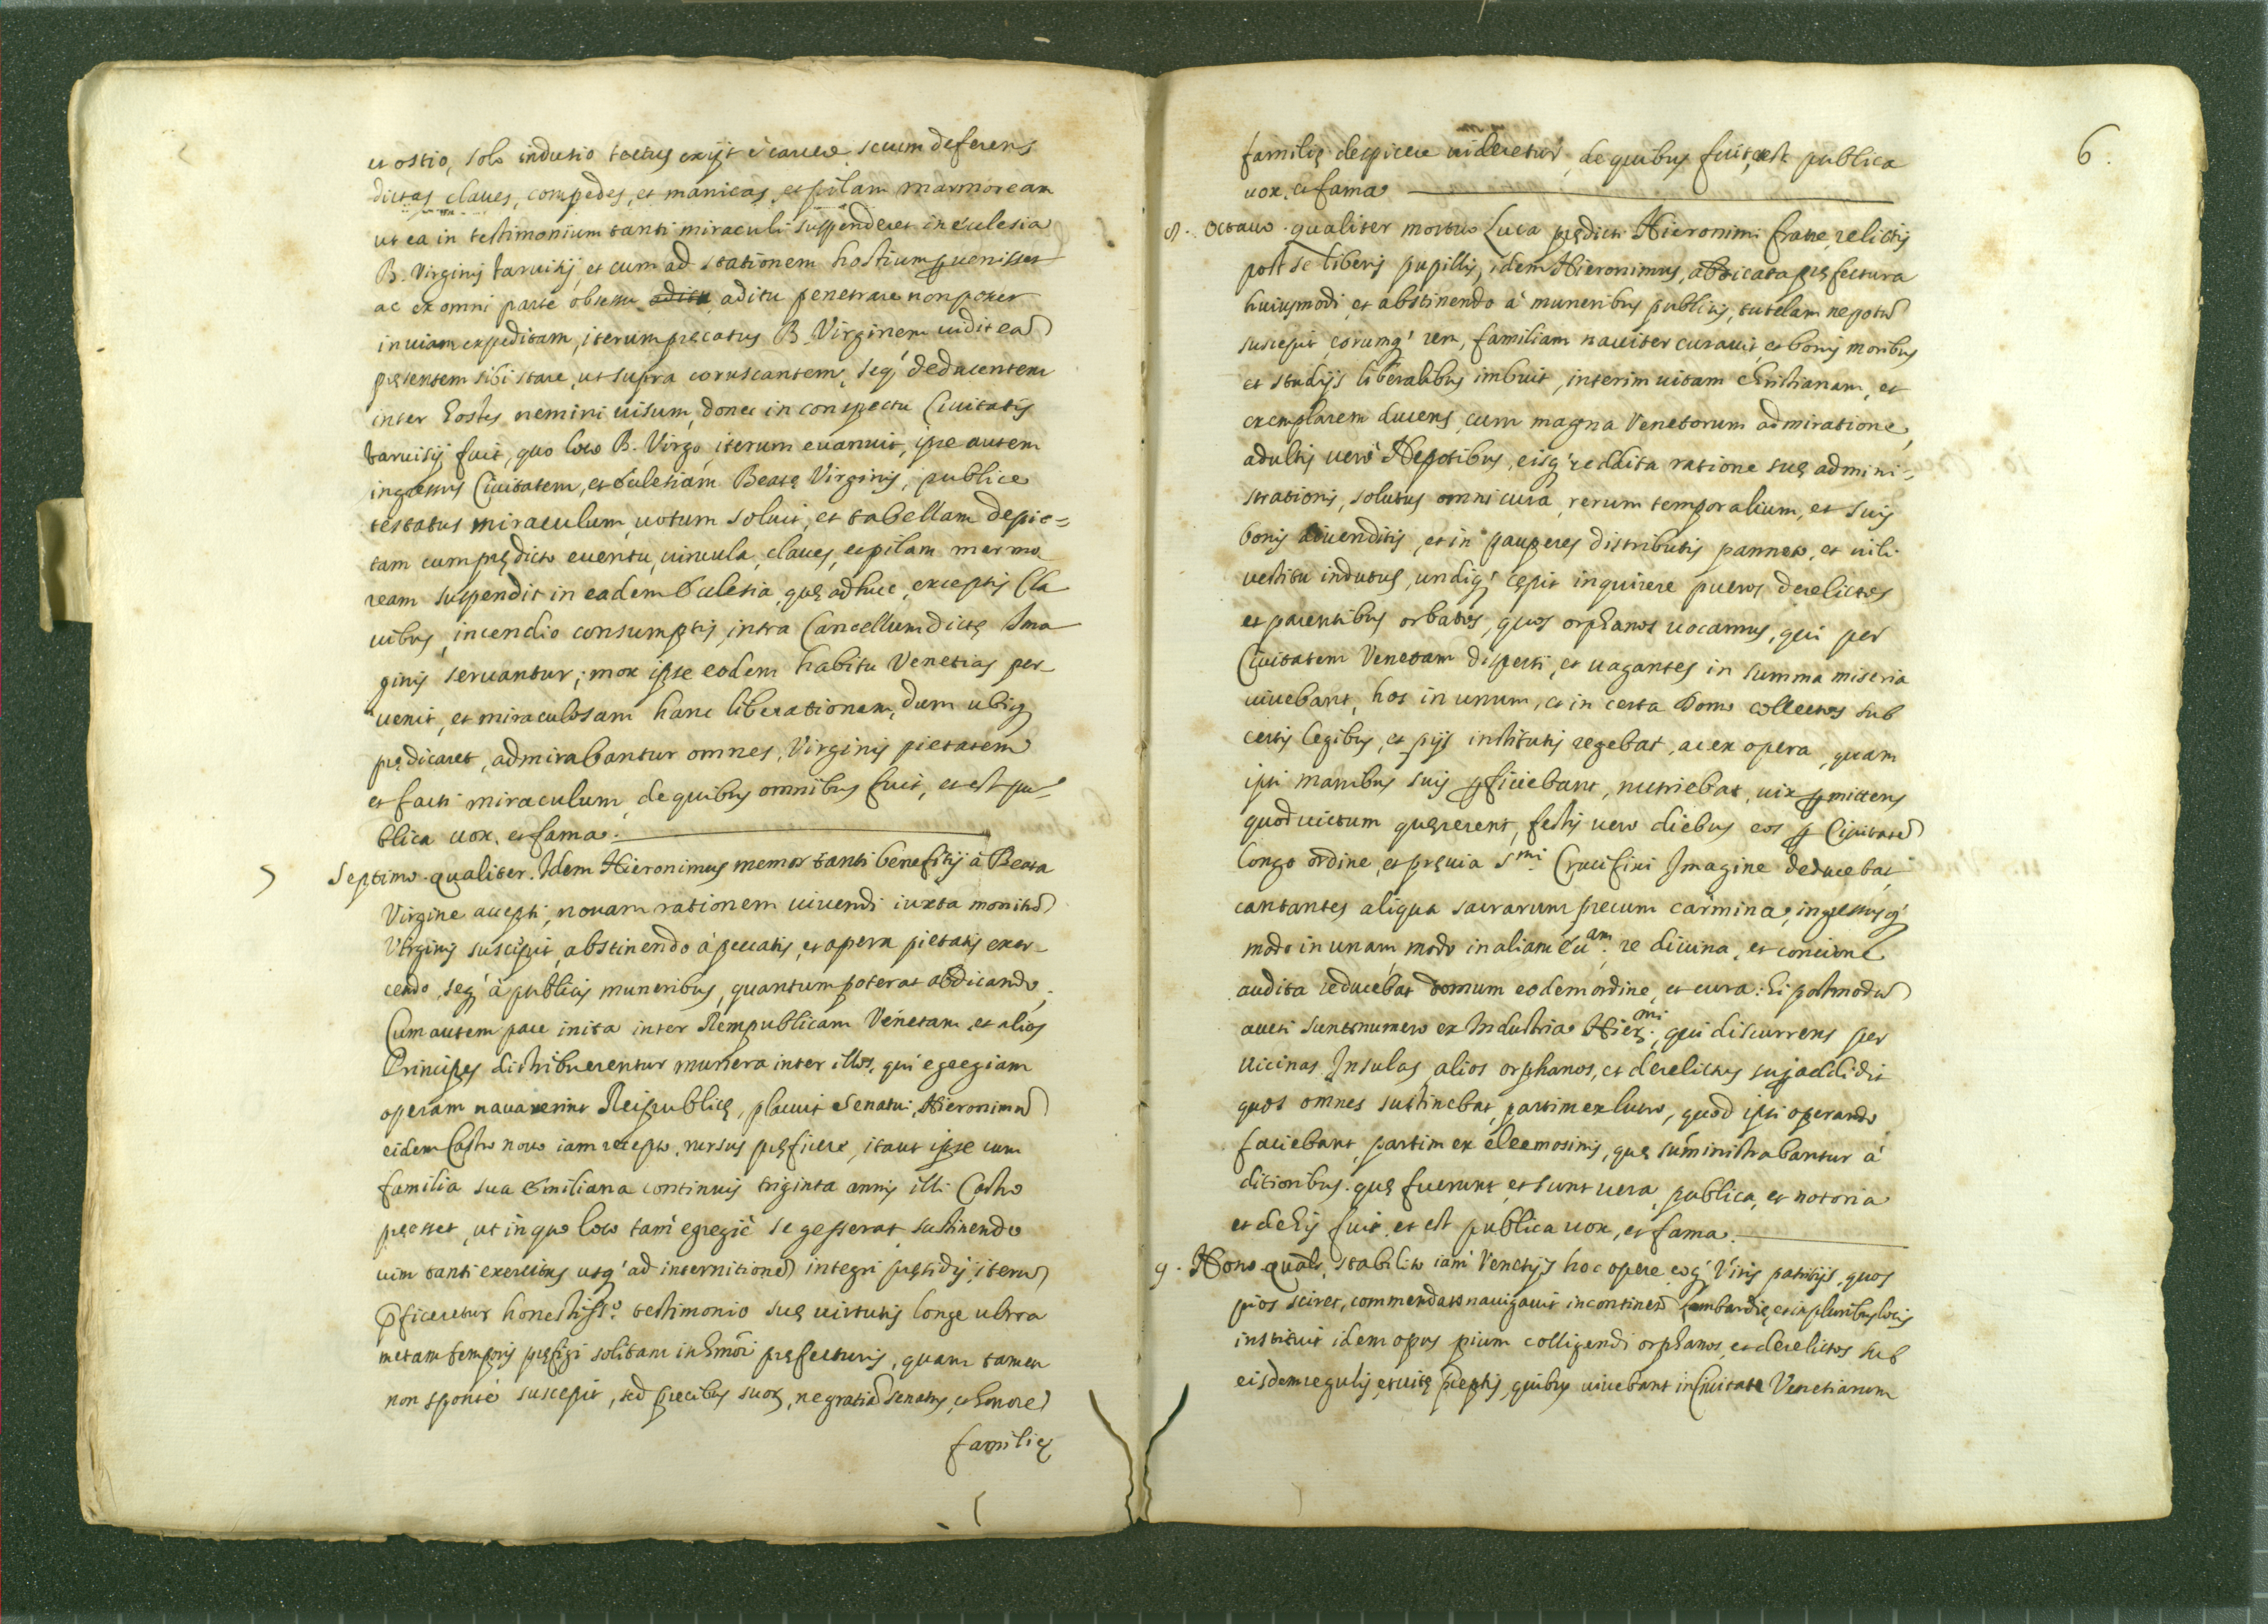 et ostio, solo indusio tectus exijt è carcere secum deferens
dictas claues, compedes, et manicas et pilam marmoream
ut ea in testimonium tanti miraculi suspenderet in ecclesia
B. Virginis Taruisij, et cum ad stationem hostium ꝑuenisset
ac ex omni parte obsessu aditu aditu penetrare non posset
in uiam expeditam, iterum precatus B. Virginem uidit eā
pręsentem sibi stare, ut supra coruscantem, seq' deducentem
inter hostes nemini uisum, donec in conspectu Ciuitatis
Taruisij fuit, quo loco B. Virgo iterum euanuit, ipse autem
ingressus Ciuitatem, et Ecclesiam Beatę Virginis, publice
testatus miraculum, uotum soluit, et tabellam depic=
tam cum prędicto euentu, uincula, claues, et pilam marmo
ream suspendit in eadem Ecclesia, quę adhuc, exceptis Cla
uibus, incendio consumptis, intra Cancellum dictę Ima
ginis seruantur; mox ipse eodem habitu Venetias per-
uenit, et miraculosam hanc liberationem, dum ubiq
prędicaret, admirabantur omnes, Virginis pietatem
et facti miraculum, de quibus omnibus fuit, et est pu=
blica uox, et fama.
7 Septimo. qualiter. Idem Hieronimus memor tanti beneficij à Beata
Virgine accepti, nouam rationem uiuendi iuxta monitū
Virginis suscipit, abstinendo à peccatis, et opera pietatis exer-
cendo, seq' à publicis muneribus, quantum poterat abdicando,
Cum autem pace inita inter Rempublicam Venetam et alios
Principes distribuerentur munera inter illos, qui egregiam
operam nauauerint Reipublicę, placuit Senatui Hieronimū
eidem Castro nouo iam recepto, rursus pręficere, itaut ipse cum
familia sua Emiliana continuis triginta annis illi Castro
pręesset, ut in quo loco tam egregiè se gesserat sustinendo
uim tanti exercitus usq' ad internitionē integri pręsidij, iterū
ꝑficeretur honestiss.o testimonio suę uirtutis longe ultra
metam temporis pręfigi solitam in hmōi pręfecturis, quam tamen
non sponte suscepit, sed precibus suoꝝ, ne gratiā Senatus, et honorē
familię
6.
familię despicere uideretur, de quibus fuit, et est publica
uox, et fama
8. Octauo. qualiter mortuo Luca prędicti Hieronimi fratre, relictis
post se liberis pupillis, idem Hieronimus, abdicata pręfectura
huiusmodi, et abstinendo à muneribus publicis, tutelam nepotū
suscepit, eorumq' rem, familiam nauiter curauit, et bonis moribus
et studijs liberalibus imbuit, interim uitam Christianam, et
exemplarem ducens, cum magna Venetorum admiratione,
adultis uerò Nepotibus, eisq' reddita ratione suę admini=
strationis, solutus omni cura, rerum temporalium, et suis
bonis diuenditis, et in pauperes distributis panneo, et uili
uestitu indutus, undiq' cępit inquirere pueros derelictos
et parentibus orbatos, quos orphanos uocamus, qui per
Ciuitatem Venetam dispersi, et uagantes in summa miseria
uiuebant, hos in unum, et in certa Domo collectos sub
certis legibus, et pijs institutis regebat, ac ex opera, quam
ipsi manibus suis ꝑficiebant, nutriebat, uix ꝑmittens
quod uictum quęrerent, festis uero diebus eos ꝑ Ciuitatē
longo ordine, et pręuia S.mi Crucifixi Imagine deducebat,
cantantes aliqua sacrarum precum carmina, ingressusq'
modo in unam, modo in aliam Ec.am, re diuina, et concione
audita reducebat domum eodem ordine, et cura: Ei postmodū
aucti sunt numero ex Industria Hier.mi, qui discurrens per
uicinas Insulas, alios orphanos, et derelictos suis addidit
quos omnes sustinebat, partim ex lucro, quod ipsi operando
faciebant, partim ex eleemosinis, quę suministrabantur à
ditioribus. quę fuerunt, et sunt uera, publica, et notoria
et de his fuit, et est publica uox, et fama.
9. Nono. Qualr̃, stabilito iam Venetijs hoc opere eoq' Viris patritijs, quos
pios sciret, commendato nauigauit in continen Lombardię, et in pluribus locis
instituit idem opus pium colligendi orphanos, et derelictos sub
eisdem regulis, et uitę pręceptis, quibus uiuebant in Ciuitate Venetiarum